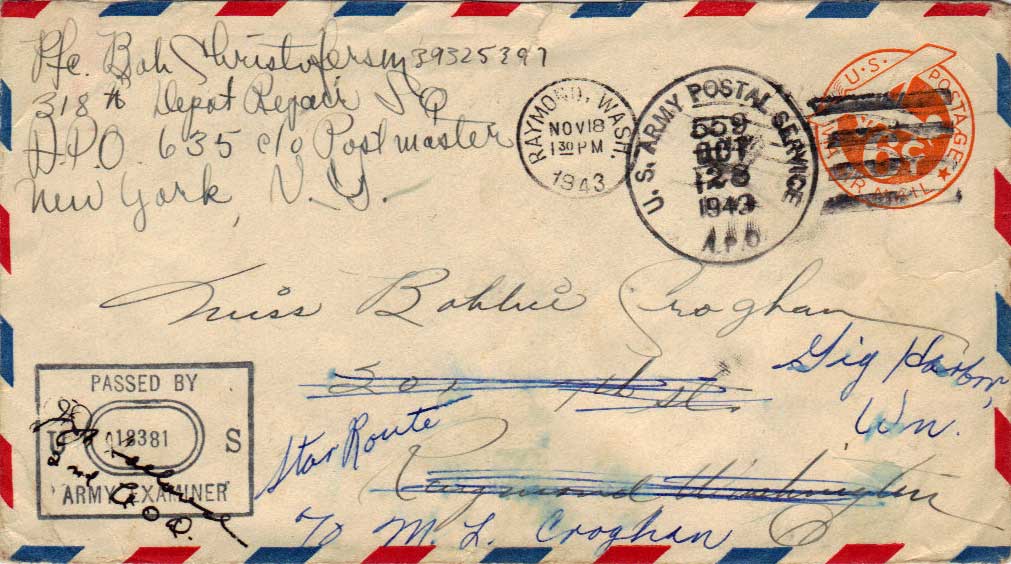 Pfc. Bob Christofersen 39325397
318th Depot Repair SQ
A.P.O. 635 c/o Postmaster
New York, N.Y.
RAYMOND, WASH.
NOV 18
1 30 PM
1943
U.S. ARMY POSTAL SERVICE
559
OCT
28
1943
A.P.O.
U.S. POSTAGE
VIA AIR MAIL
6¢
Miss Bobbie Croghan
St.
Gig Harbor,
Wn.
Star Route
Raymond Washington
% M. L. Croghan
PASSED BY
U 18381 S
ARMY EXAMINER